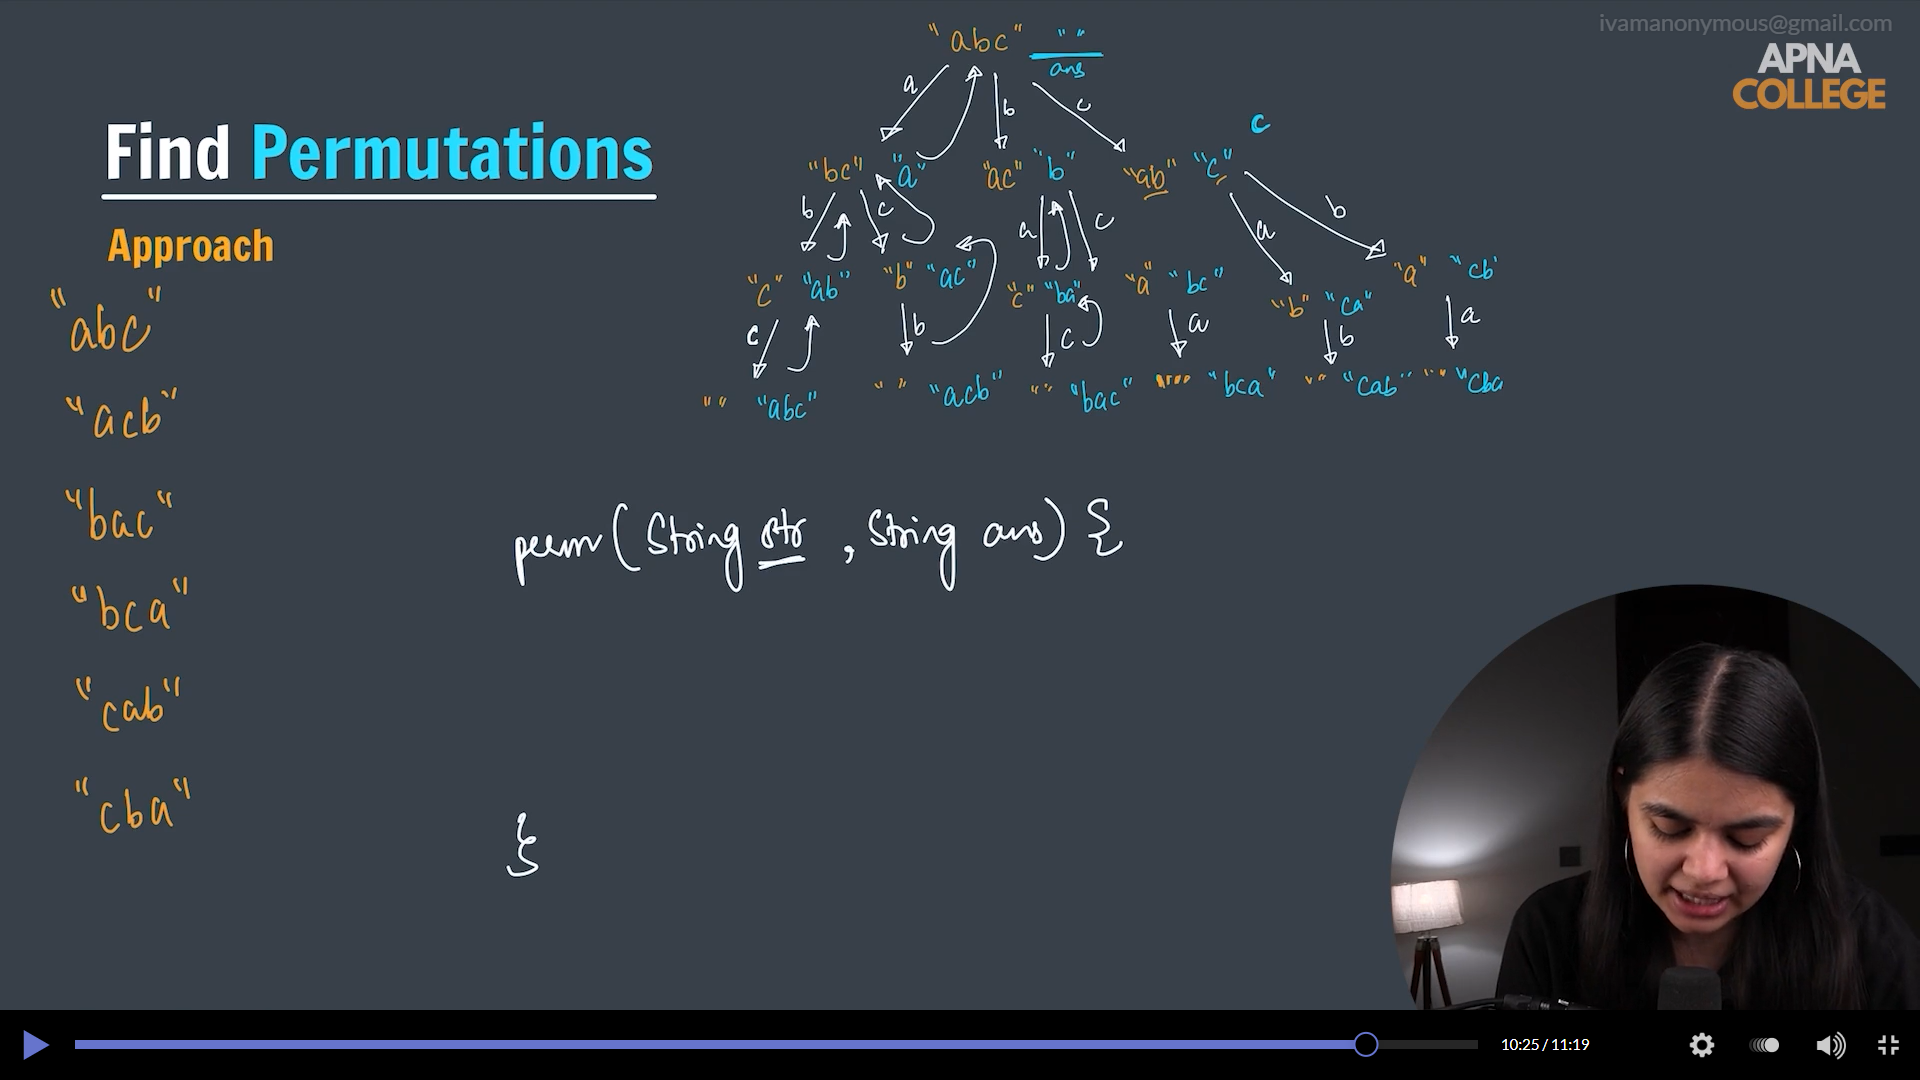 ivamanonymous@gmail.com
APNA
COLLEGE
Find Permutations
Approach
"abc"
"acb"
"bac"
"bca"
"cab"
"cba"
"abc" " "
ans
a b c
c
"bc" "a" "ac" "b" "ab" "c"
b c a c a b
"c" "ab" "b" "ac" "c" "ba" "a" "bc" "b" "ca" "a" "cb'
c b c a b a
" " "abc" " " "acb" " " "bac" """" "bca" "" "cab" "" "cba
perm (String str , String ans) {
}
10:25 / 11:19